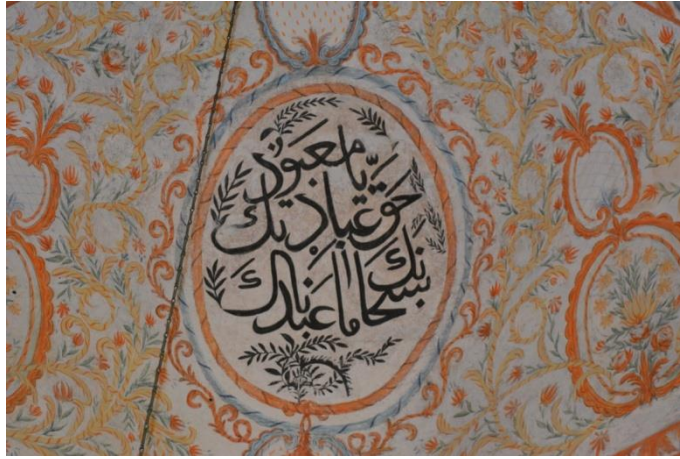 سبحانك ما عبدناك
حق عبادتك
يا معبود